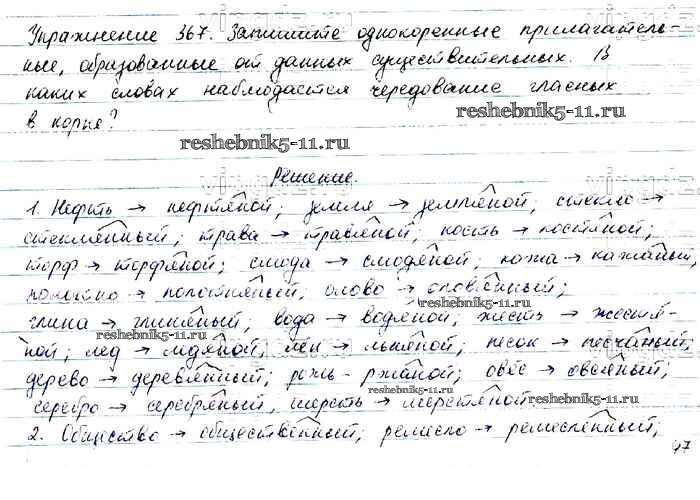 Упражнение 367. Запишите однокоренные прилагатель-
ные, образованные от данных существительных. В
каких словах наблюдается чередование гласных
в корне?
reshebnik5-11.ru
reshebnik5-11.ru
Решение
1. Нефть → нефтяной; земля → земляной; стекло →
стеклянный; трава → травяной; кость → костяной;
торф → торфяной; смола → смоляной; кожа → кожаный;
полотно → полотняный; олово → оловянный;
reshebnik5-11.ru
глина → глиняный; вода → водяной; жесть → жестя-
reshebnik5-11.ru
ной; лед → ледяной; лён → льняной; песок → песчаный;
дерево → деревянный; рожь - ржаной; овёс → овсяный;
reshebnik5-11.ru
серебро → серебряный, шерсть → шерстяной
reshebnik5-11.ru
2. Общество → общественный; ремесло → ремесленный;
47